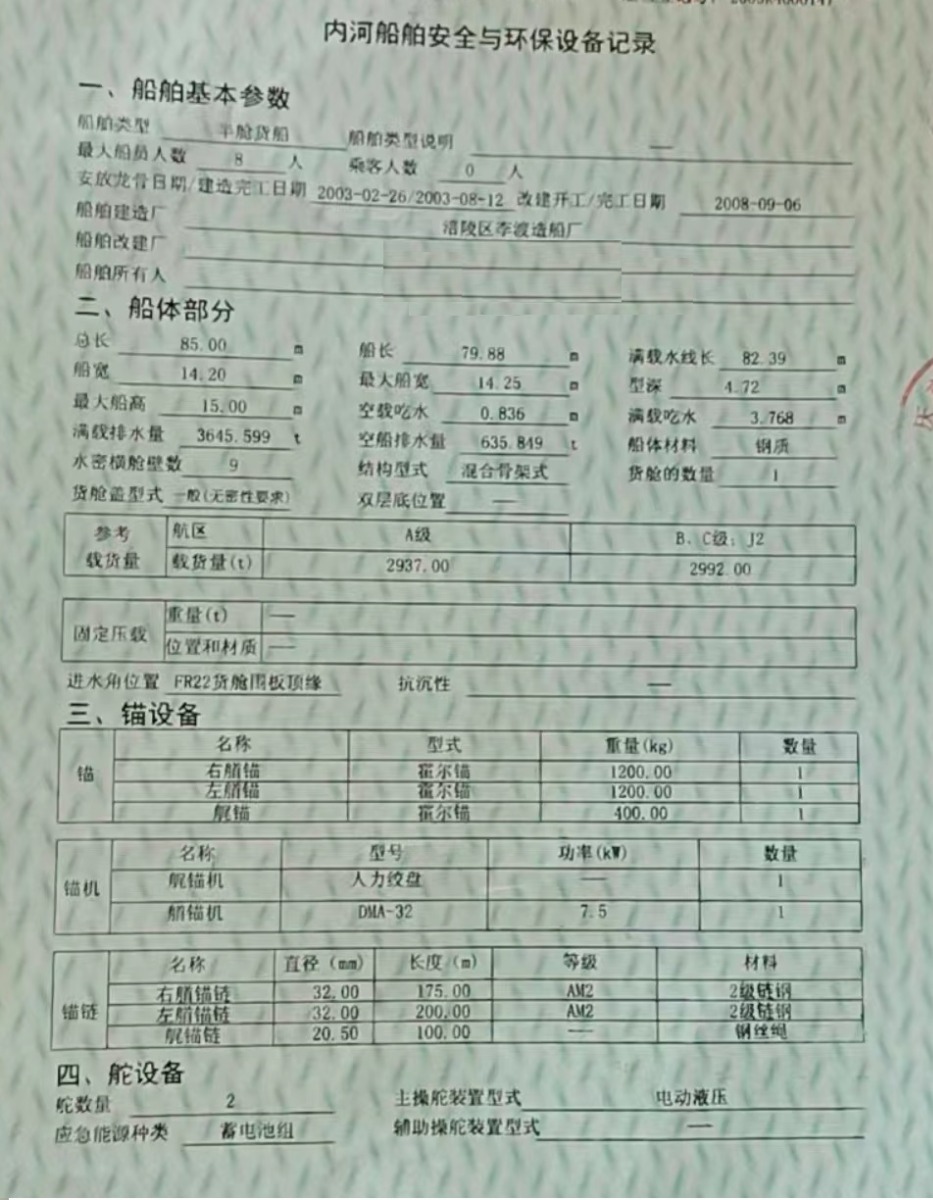 内河船舶安全与环保设备记录
一、船舶基本参数
船舶类型 干舱货船 船舶类型说明 —
最大船员人数 8 人 乘客人数 0 人
安放龙骨日期/建造完工日期 2003-02-26/2003-08-12 改建开工/完工日期 2008-09-06
船舶建造厂 涪陵区李渡造船厂
船舶改建厂
船舶所有人
二、船体部分
总长 85.00 m 船长 79.88 m 满载水线长 82.39 m
船宽 14.20 m 最大船宽 14.25 m 型深 4.72 m
最大船高 15.00 m 空载吃水 0.836 m 满载吃水 3.768 m
满载排水量 3645.599 t 空船排水量 635.849 t 船体材料 钢质
水密横舱壁数 9 结构型式 混合骨架式 货舱的数量 1
货舱盖型式 一般(无密性要求) 双层底位置 —
参考载货量 航区 A级 B、C级; J2
载货量(t) 2937.00 2992.00
固定压载 重量(t) —
位置和材质 —
进水角位置 FR22货舱围板顶缘 抗沉性 —
三、锚设备
锚 名称 型式 重量(kg) 数量
右艏锚 霍尔锚 1200.00 1
左艏锚 霍尔锚 1200.00 1
艉锚 霍尔锚 400.00 1
锚机 名称 型号 功率(kW) 数量
艉锚机 人力绞盘 — 1
艏锚机 DMA-32 7.5 1
锚链 名称 直径(mm) 长度(m) 等级 材料
右艏锚链 32.00 175.00 AM2 2级链钢
左艏锚链 32.00 200.00 AM2 2级链钢
艉锚链 20.50 100.00 — 钢丝绳
四、舵设备
舵数量 2 主操舵装置型式 电动液压
应急能源种类 蓄电池组 辅助操舵装置型式 —